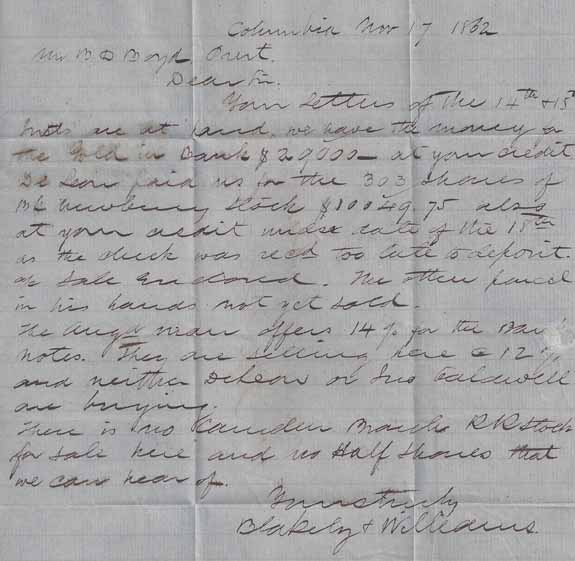 Columbia Nov 17 1862
Mr B D Boyd Prest.
Dear Sir.
Your Letters of the 14th & 15th
insts are at hand, we have the money
the Gold in Bank $29000 - at your credit
De Leon paid us for the 303 Shares of
Bk Newberry Stock $10049.75 also
at your credit under date of the 18th
as the check was recd too late to deposit.
Sale Enclosed. The other parcel
in his hands not yet sold.
The Augta man offers 14 % for the
notes. They are selling here @ 12 %
and neither DeLeon or Jno Caldwell
are buying.
There is no Camden Branch RR Stock
for sale here and no Half Shares that
we can hear of.
Yours truly
Blakely & Williams.